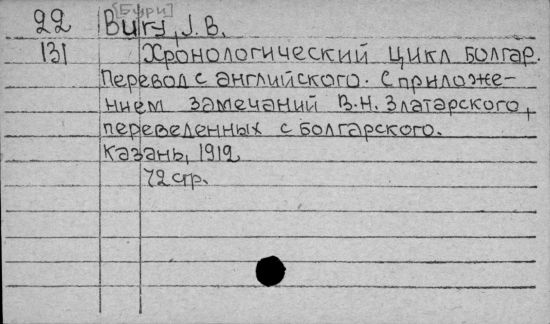 [Бури]
22 Bury, J. B.
131 Хронологический цикл болгар.
Перевод с английского. С приложе-
нием замечаний В.Н. Златарского,
переведенных с болгарского.
Казань, 1912
72 стр.